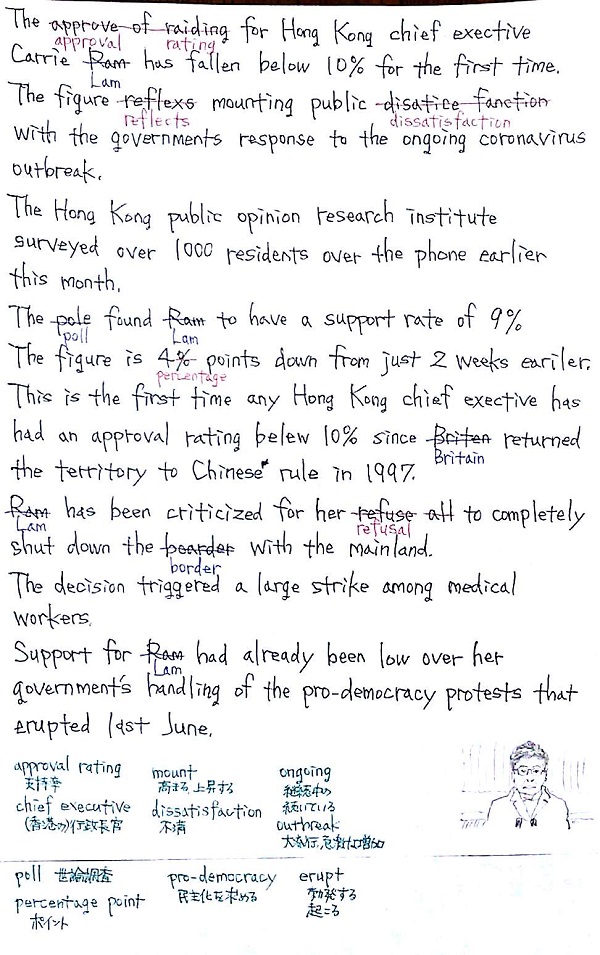 The approve of raiding for Hong Kong chief exective
approval rating
Carrie Ram has fallen below 10% for the first time.
Lam
The figure reflexs mounting public disatice fanction
reflects dissatisfaction
with the governments response to the ongoing coronavirus
outbreak.
The Hong Kong public opinion research institute
surveyed over 1000 residents over the phone earlier
this month.
The pole found Ram to have a support rate of 9%
poll Lam
The figure is 4% points down from just 2 weeks eariler.
percentage
This is the first time any Hong Kong chief exective has
had an approval rating belew 10% since Briten returned
Britain
the territory to Chinese rule in 1997.
Ram has been criticized for her refuse all to completely
Lam refusal
shut down the boarder with the mainland.
border
The decision triggered a large strike among medical
workers.
Support for Ram had already been low over her
Lam
government's handling of the pro-democracy protests that
erupted last June.
approval rating mount ongoing
支持率 高まる, 上昇する 継続中の
chief executive dissatisfaction 続いている
(香港の)行政長官 不満 outbreak
大流行, 急激な増加
poll 世論調査 pro-democracy erupt
percentage point 民主化を求める 勃発する
ポイント 起こる